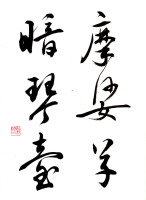 摩娑草
暗琴臺